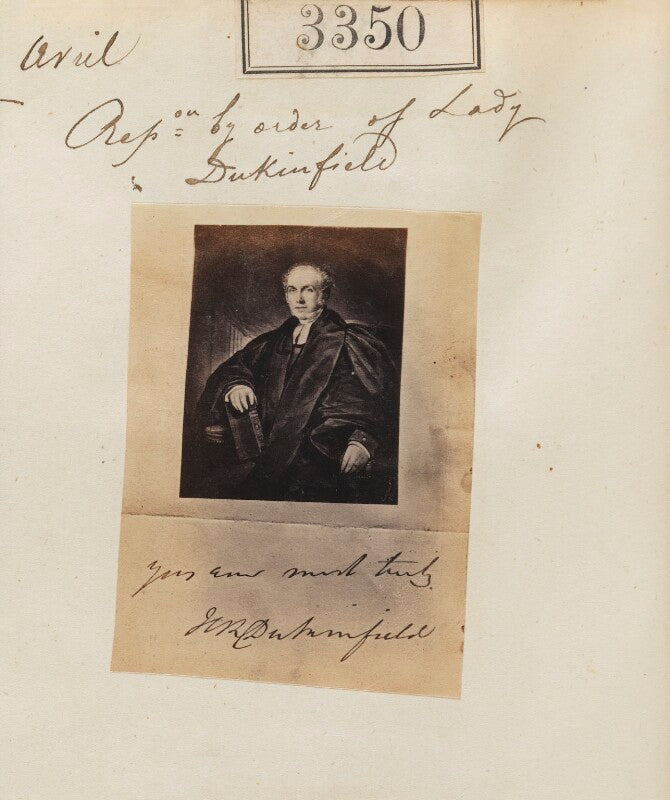 3350
April
Rep:on by order of Lady
Dukinfield
yrs ever most truly
HRDukinfield